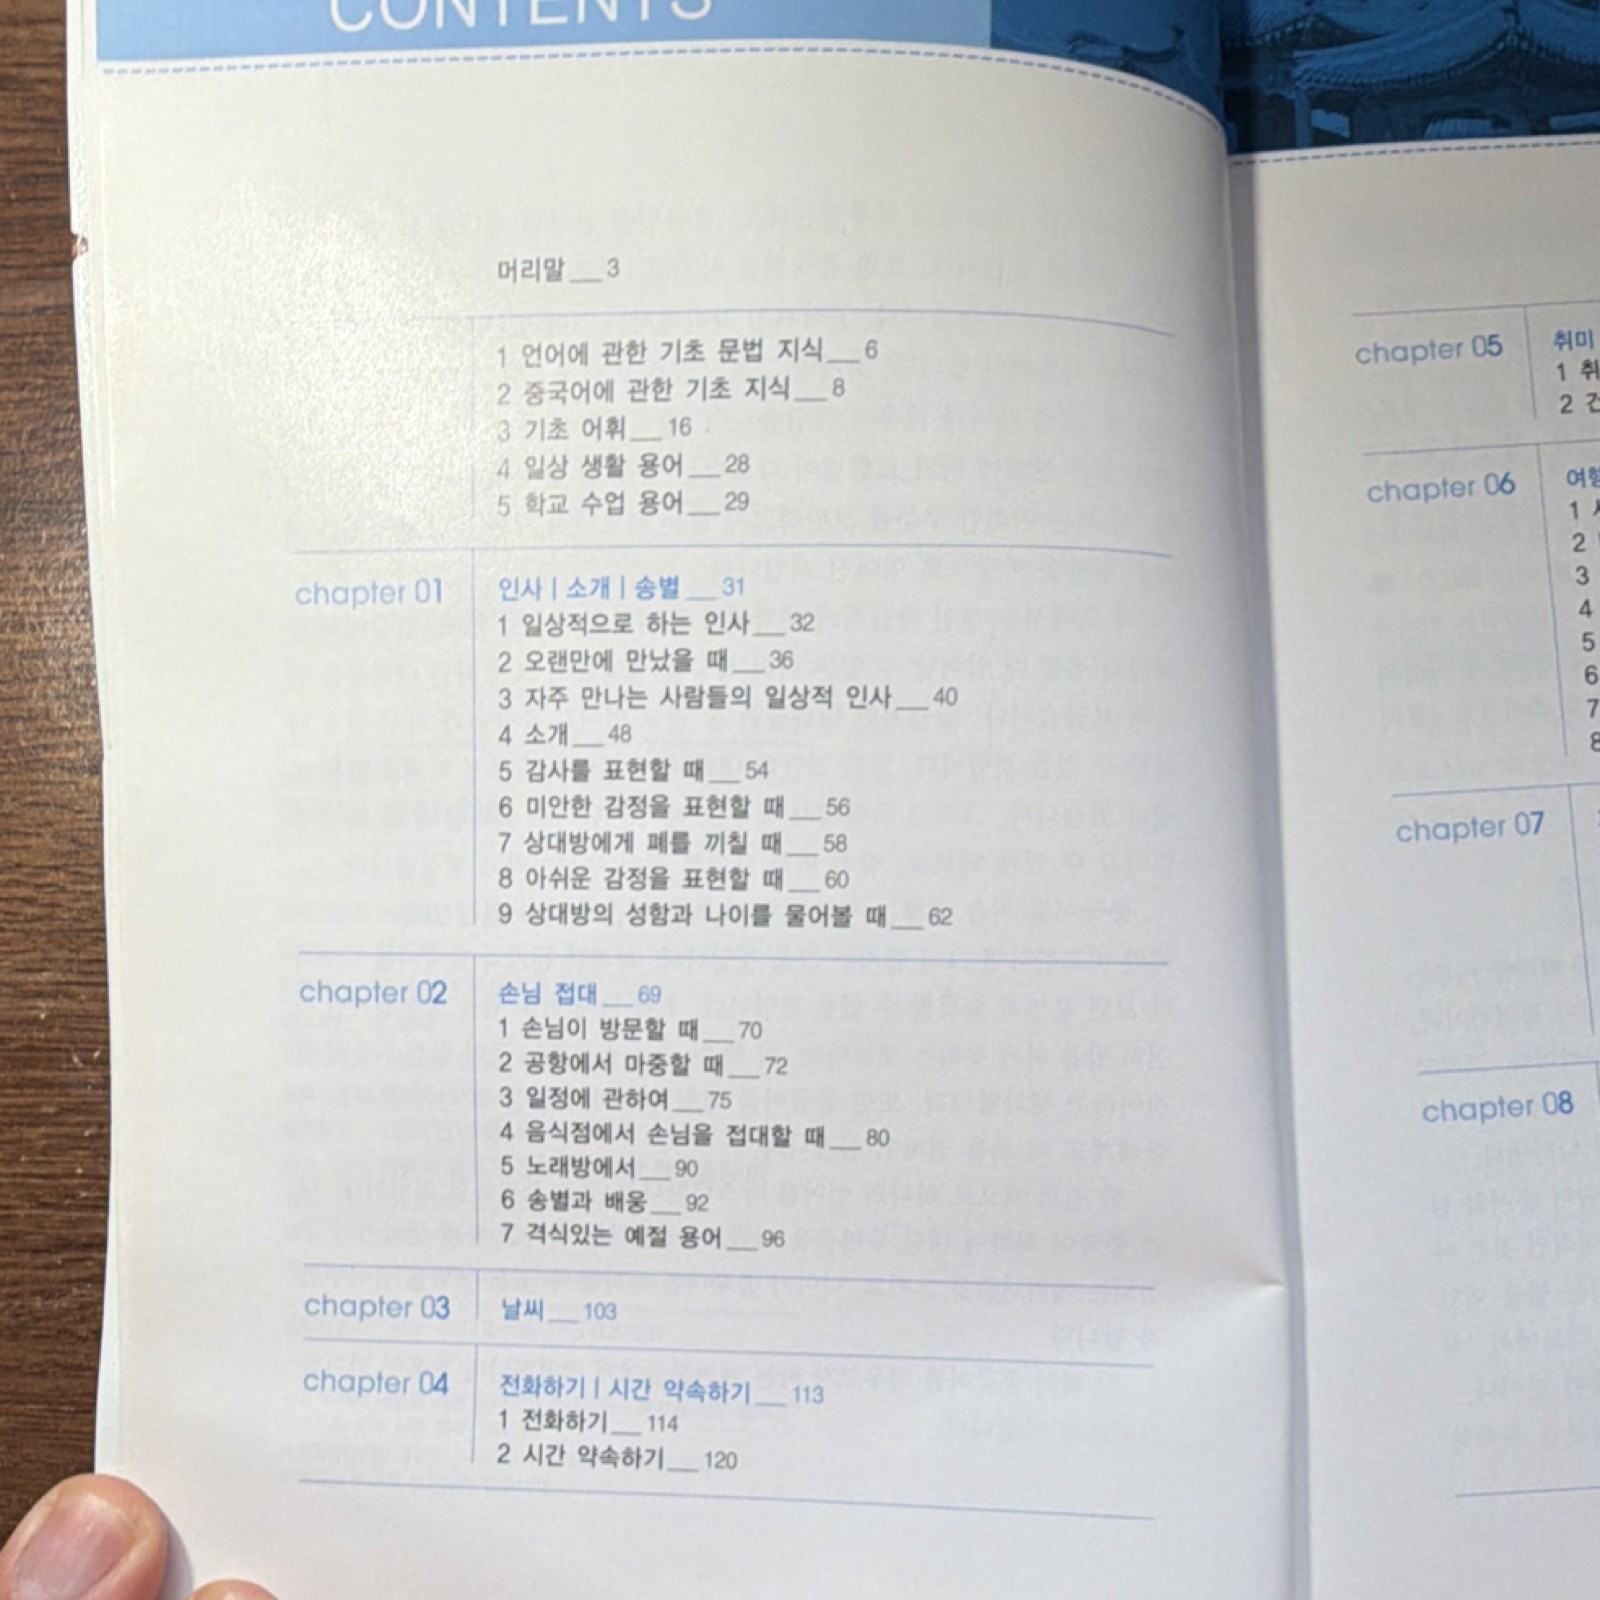 CONTENTS
머리말__3
1 언어에 관한 기초 문법 지식__6
2 중국어에 관한 기초 지식__8
3 기초 어휘__16
4 일상 생활 용어__28
5 학교 수업 용어__29
chapter 01
인사 | 소개 | 송별__31
1 일상적으로 하는 인사__32
2 오랜만에 만났을 때__36
3 자주 만나는 사람들의 일상적 인사__40
4 소개__48
5 감사를 표현할 때__54
6 미안한 감정을 표현할 때__56
7 상대방에게 폐를 끼칠 때__58
8 아쉬운 감정을 표현할 때__60
9 상대방의 성함과 나이를 물어볼 때__62
chapter 02
손님 접대__69
1 손님이 방문할 때__70
2 공항에서 마중할 때__72
3 일정에 관하여__75
4 음식점에서 손님을 접대할 때__80
5 노래방에서__90
6 송별과 배웅__92
7 격식있는 예절 용어__96
chapter 03
날씨__103
chapter 04
전화하기 | 시간 약속하기__113
1 전화하기__114
2 시간 약속하기__120
chapter 05
취미
1 취
2 건
chapter 06
여행
1
2
3
4
5
6
7
8
chapter 07
chapter 08